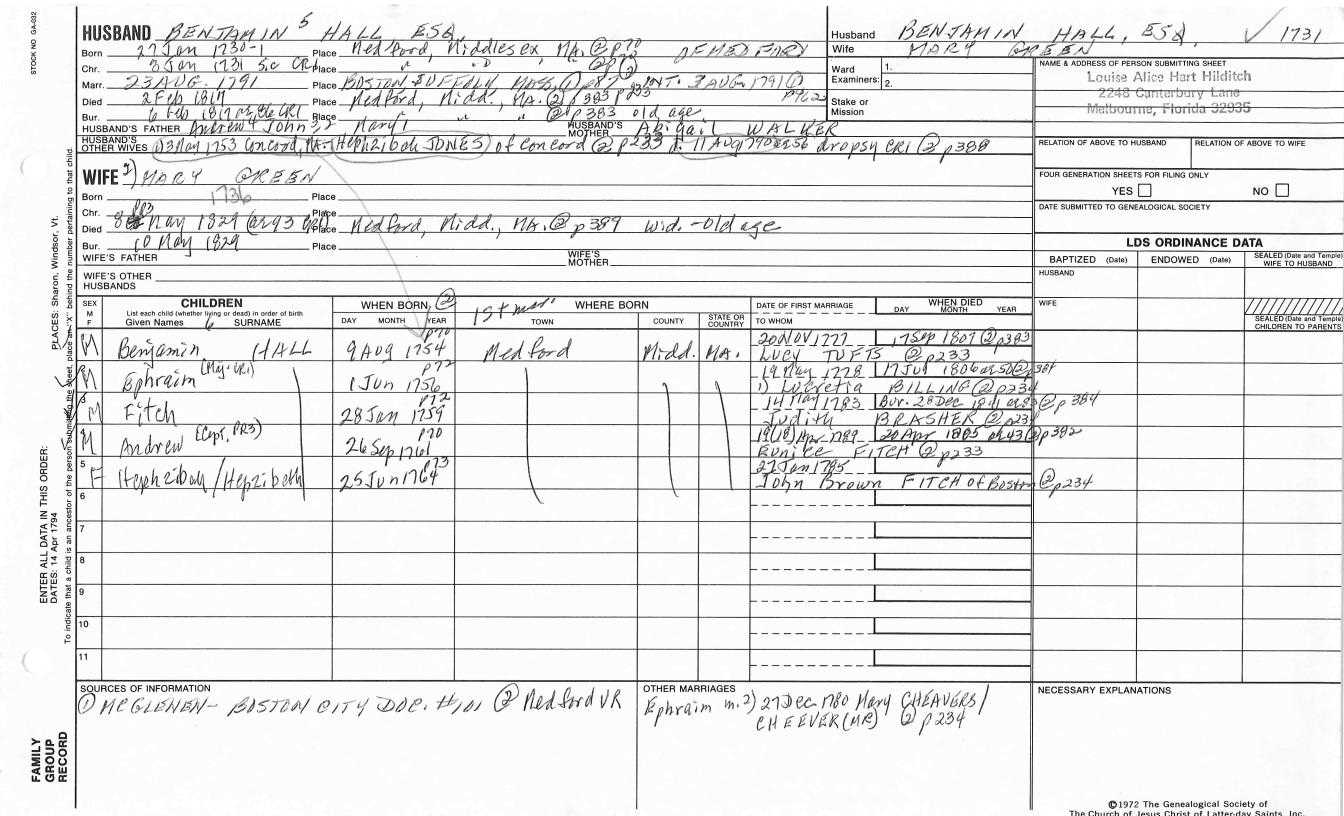 STOCK NO GA-032
HUSBAND BENJAMIN 5 HALL ESQ.
Born 27 Jan 1730-1 Place Medford, Middlesex MA. ② p70 OF MEDFORD
Chr. 3 Jan 1731 S.C CR1 Place " " ② p
Marr. 23 AUG. 1791 Place BOSTON SUFFOLK MASS. ① p87 INT. 3 AUG. 1791 ①
Died 2 Feb 1817 Place Medford, Midd., MA. ② p383 p233 p462
Bur. 6 Feb 1817 ae 86 CR1 Place " " ② p383 old age
HUSBAND'S FATHER Andrew 4 John 3,2 Mary 1 HUSBAND'S MOTHER Abigail WALKER
HUSBAND'S OTHER WIVES 1) 3 May 1753 Concord, MA. Hephzibah JONES) of Concord ② p233 d. 11 AUG 1790 ae 56 dropsy CR1 ② p388
WIFE 2) MARY GREEN
Born 1736 Place
Chr. PR3 Place
Died 8 May 1829 (ae 93 CR1) Place Medford, Midd., MA. ② p389 wid. - old age
Bur. 10 May 1829 Place
WIFE'S FATHER WIFE'S MOTHER
WIFE'S OTHER HUSBANDS
Husband BENJAMIN HALL, ESQ. ✓ 1731
Wife MARY GREEN
Ward Examiners: 1.
2.
Stake or Mission
NAME & ADDRESS OF PERSON SUBMITTING SHEET
Louise Alice Hart Hilditch
2248 Canterbury Lane
Melbourne, Florida 32935
RELATION OF ABOVE TO HUSBAND RELATION OF ABOVE TO WIFE
FOUR GENERATION SHEETS FOR FILING ONLY
YES NO
DATE SUBMITTED TO GENEALOGICAL SOCIETY
LDS ORDINANCE DATA
BAPTIZED (Date) ENDOWED (Date) SEALED (Date and Temple) WIFE TO HUSBAND
HUSBAND
WIFE
SEALED (Date and Temple) CHILDREN TO PARENTS
SEX M F CHILDREN List each child (whether living or dead) in order of birth Given Names 6 SURNAME
WHEN BORN ② DAY MONTH YEAR
1st mar. WHERE BORN TOWN COUNTY STATE OR COUNTRY
DATE OF FIRST MARRIAGE TO WHOM
WHEN DIED DAY MONTH YEAR
M Benjamin HALL 9 AUG 1754 p70 Medford Midd. MA. 20 NOV 1777 17 Sep 1807 ② p383
LUCY TUFTS ② p233
M Ephraim (Maj. CR1) 1 Jun 1756 p72 19 May 1778 17 Jul 1806 ae 50 ② p384
1) Lucretia BILLING ② p234
3 M Fitch 28 Jan 1759 p72 14 May 1783 Bur. 28 Dec 1841 ae 83 ② p384
Judith BRASHER ② p234
4 M Andrew (Capt. PR3) 26 Sep 1761 p70 19(18) Apr 1789 20 Apr 1805 ae 43 ② p382
Eunice FITCH ② p233
5 F Hephzibah / Hepzibeth 25 Jun 1764 p73 27 Jan 1785
John Brown FITCH of Boston ② p234
6
7
8
9
10
11
SOURCES OF INFORMATION
① MCGLENEN - BOSTON CITY DOC. #101 ② Medford VR
OTHER MARRIAGES
Ephraim m. 2) 27 Dec 1780 Mary CHEAVERS /
CHEEVER (MR) ② p234
NECESSARY EXPLANATIONS
FAMILY GROUP RECORD
ENTER ALL DATA IN THIS ORDER:
DATES: 14 Apr 1794
PLACES: Sharon, Windsor, Vt.
To indicate that a child is an ancestor of the person submitting the sheet, place an "X" behind the number pertaining to that child.
©1972 The Genealogical Society of
The Church of Jesus Christ of Latter-day Saints, Inc.